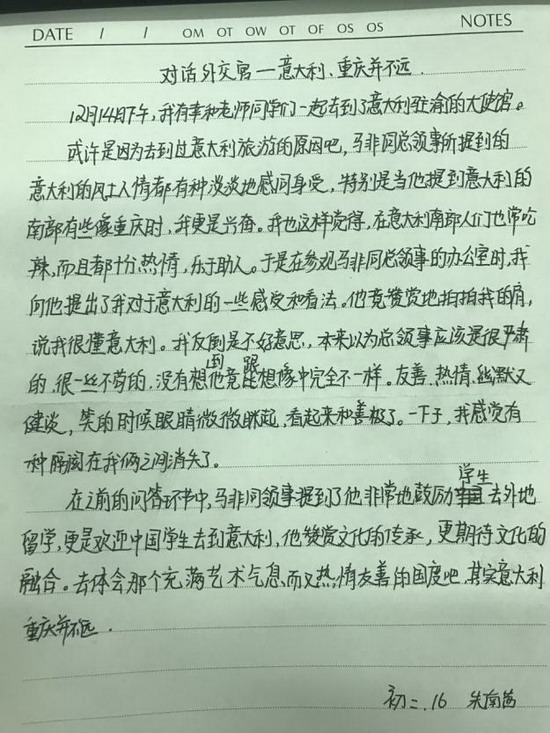 DATE / / OM OT OW OT OF OS OS NOTES
对话外交官—意大利、重庆并不远.
12月14日下午,我有幸和老师同学们一起去到了意大利驻渝的大使馆。
或许是因为去到过意大利旅游的原因吧,马非同总领事所提到的
意大利的风土人情都有种淡淡地感同身受,特别是当他提到意大利的
南部有些像重庆时,我更是兴奋。我也这样觉得,在意大利南部人们也常吃
辣,而且都十分热情,乐于助人。于是在参观马非同总领事的办公室时,我
向他提出了我对于意大利的一些感受和看法。他竟赞赏地拍拍我的肩,
说我很懂意大利。我反倒是不好意思,本来以为总领事应该是很严肃
的、很一丝不苟的,没有想到他竟跟想像中完全不一样。友善、热情、幽默又
健谈,笑的时候眼睛微微眯起,看起来和善极了。一下子,我感觉有
种隔阂在我俩之间消失了。
在之前的问答环节中,马非同领事提到了他非常地鼓励学生去外地
留学,更是欢迎中国学生去到意大利,他赞赏文化的传承,更期待文化的
融合。去体会那个充满艺术气息而又热情友善的国度吧,其实意大利
重庆并不远.
初二.16 朱南